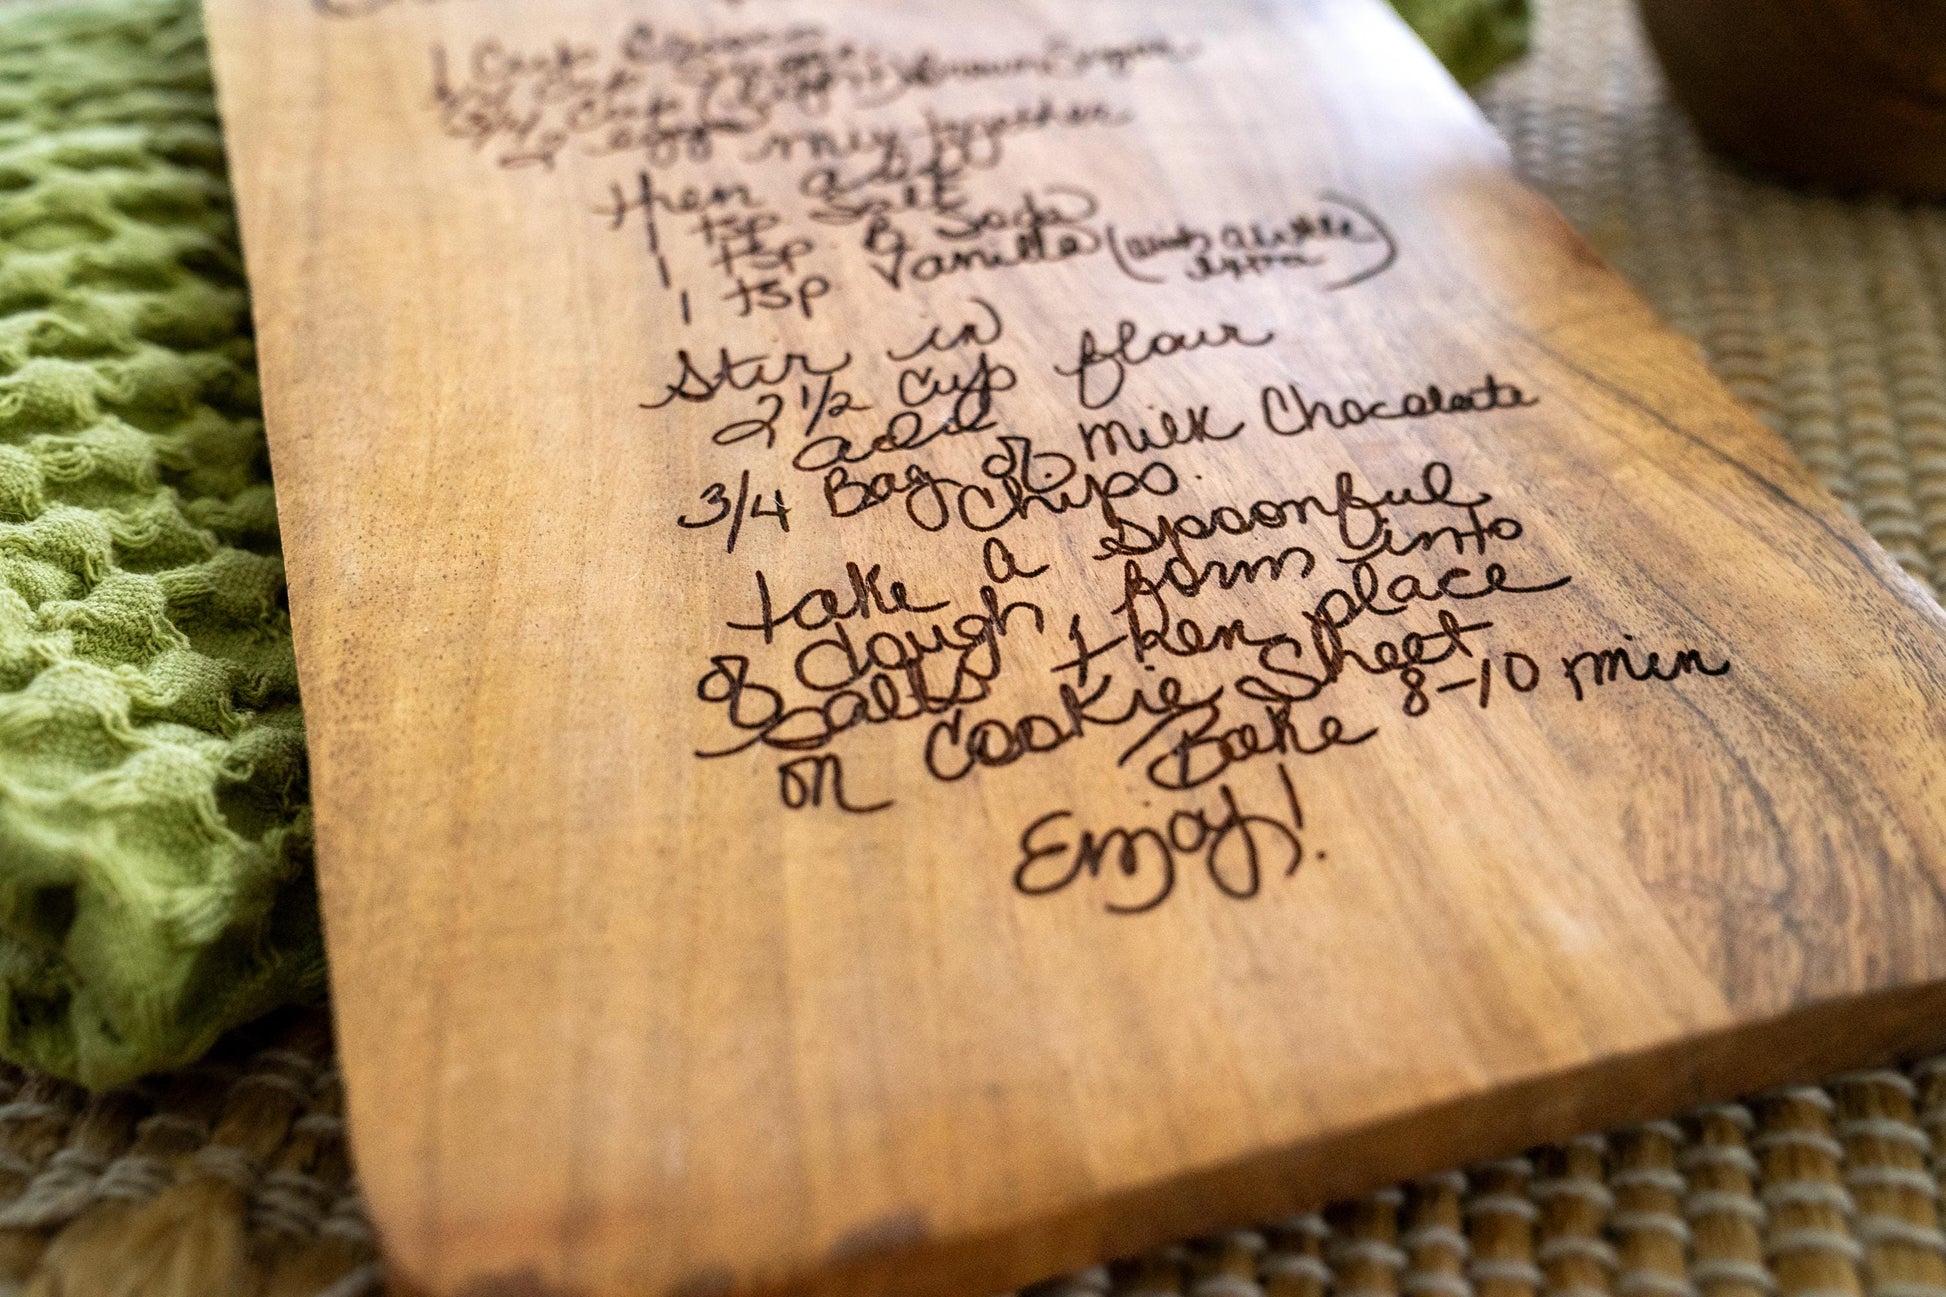 1 Cup
3/4 Cup (light) brown Sugar
egg mix together
then add
1 tsp salt
1 tsp B. Soda
1 tsp Vanilla (and a little extra)
Stir in
2 1/2 cup flour
add
3/4 Bag of Milk Chocolate
Chips.
take a spoonful
of dough, form into
balls then place
on Cookie Sheet
Bake 8-10 min
Enjoy!